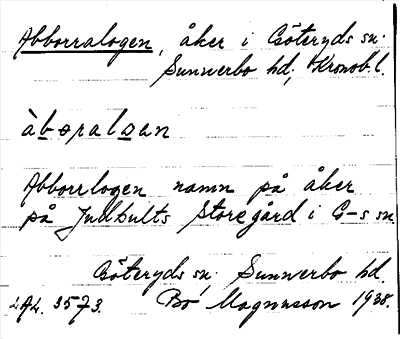 Abborralogen, åker i Göteryds sn.
Sunnerbo hd, Kronob. l.
àbəralωan
Abborrlogen namn på åker
på Julhults Storegård i G-s sn.
Göteryds sn, Sunnerbo hd.
LAL. 3573. Bo Magnusson 1938.